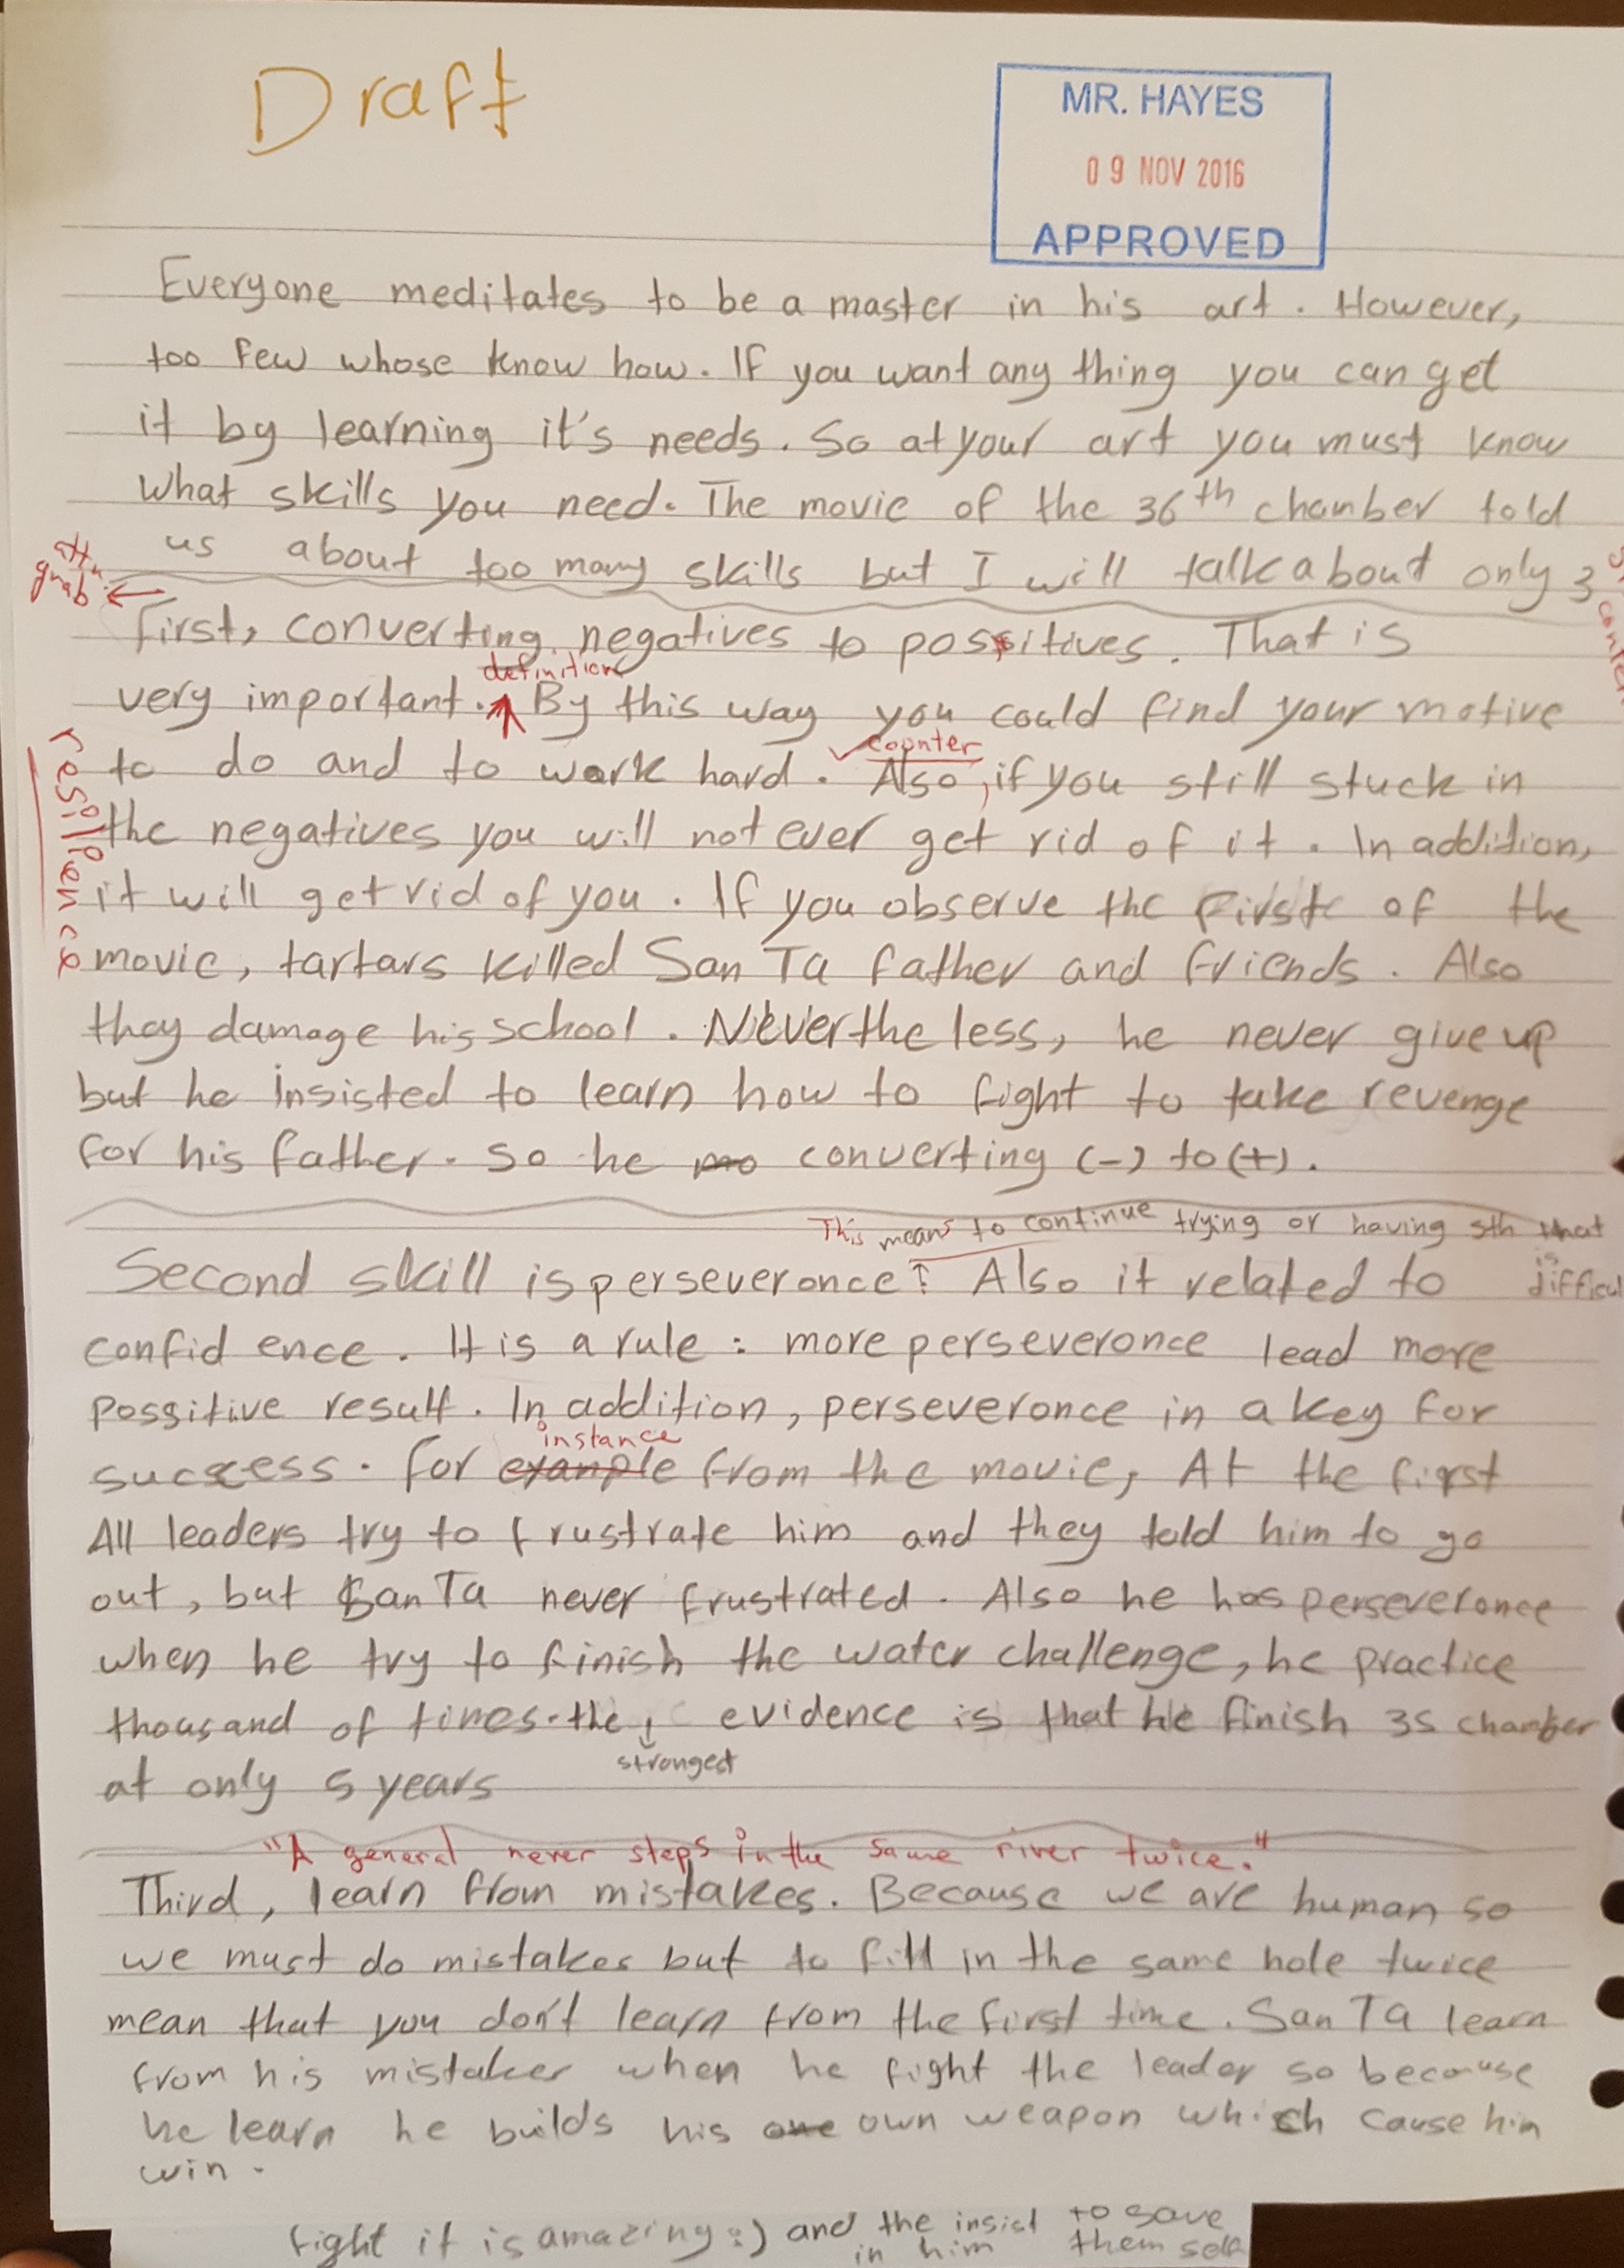 Draft
MR. HAYES
09 NOV 2016
APPROVED
Everyone meditates to be a master in his art. However,
too few whose know how. If you want any thing you can get
it by learning it's needs. So at your art you must know
what skills you need. The movie of the 36th chamber told
us about too many skills but I will talk about only 3
attn.
grab ←
First, converting negatives to possitives. That is
definition
very important. By this way you could find your motive
counter
to do and to work hard. Also, if you still stuck in
resilience
the negatives you will not ever get rid of it. In addition,
it will get rid of you. If you observe the first of the
movie, tartars killed San Ta father and friends. Also
they damage his school. Never the less, he never give up
but he insisted to learn how to fight to take revenge
for his father. So he converting (-) to (+).
This means to continue trying or having sth that
is
difficul
Second skill is perseverence. Also it related to
confid ence. It is a rule: more perseverence lead more
possitive result. In addition, perseverence in a key for
instance
success. for example from the movie, At the first
All leaders try to frustrate him and they told him to go
out, but San Ta never frustrated. Also he has perseverence
when he try to finish the water challenge, he practice
thousand of times. the evidence is that he finish 35 chamber
strongest
at only 5 years
"A general never steps in the same river twice."
Third, learn from mistakes. Because we are human so
we must do mistakes but to fill in the same hole twice
mean that you don't learn from the first time. San Ta learn
from his mistakes when he fight the leader so because
he learn he builds his one own weapon which cause him
win.
fight it is amazing :) and the insist to save
in him them self